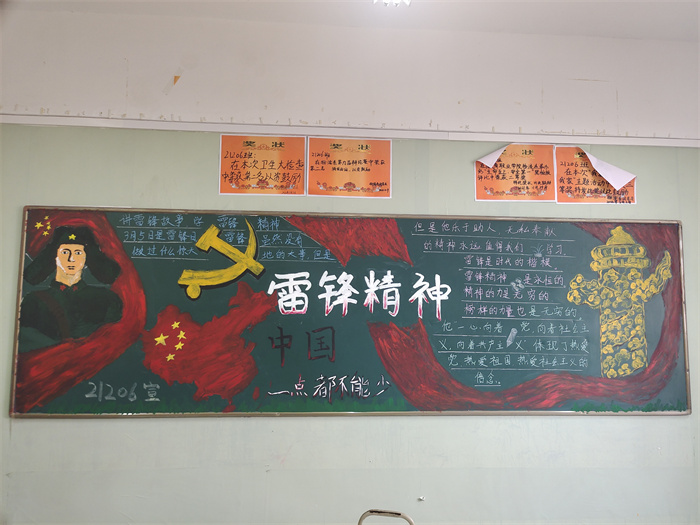 奖状
21206班：
在本次卫生大检查
中荣获第二名以资鼓励
奖状
奖状
21206班
在本次
讲雷锋故事 学 雷锋 精神
3月5日是雷锋日 雷锋 虽然没有
做过什么惊天 地的大事 但是
但是他乐于助人 无私奉献
的精神永远值得我们 学习
雷锋是时代的楷模
雷锋精神 是永恒的
精神的力是无穷的
榜样的力量也是无穷的。
他一心向着 党,向着社会主
义,向着共产主 义 体现了热爱
党 热爱祖国 热爱社会主义的
信念。
雷锋精神
中国
一点都不能少
21206宣